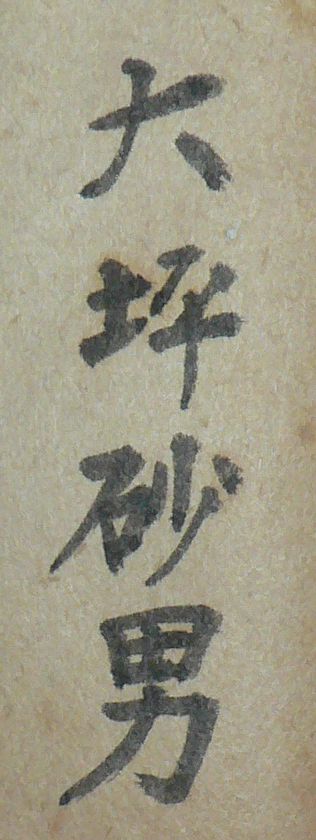 大坪砂男